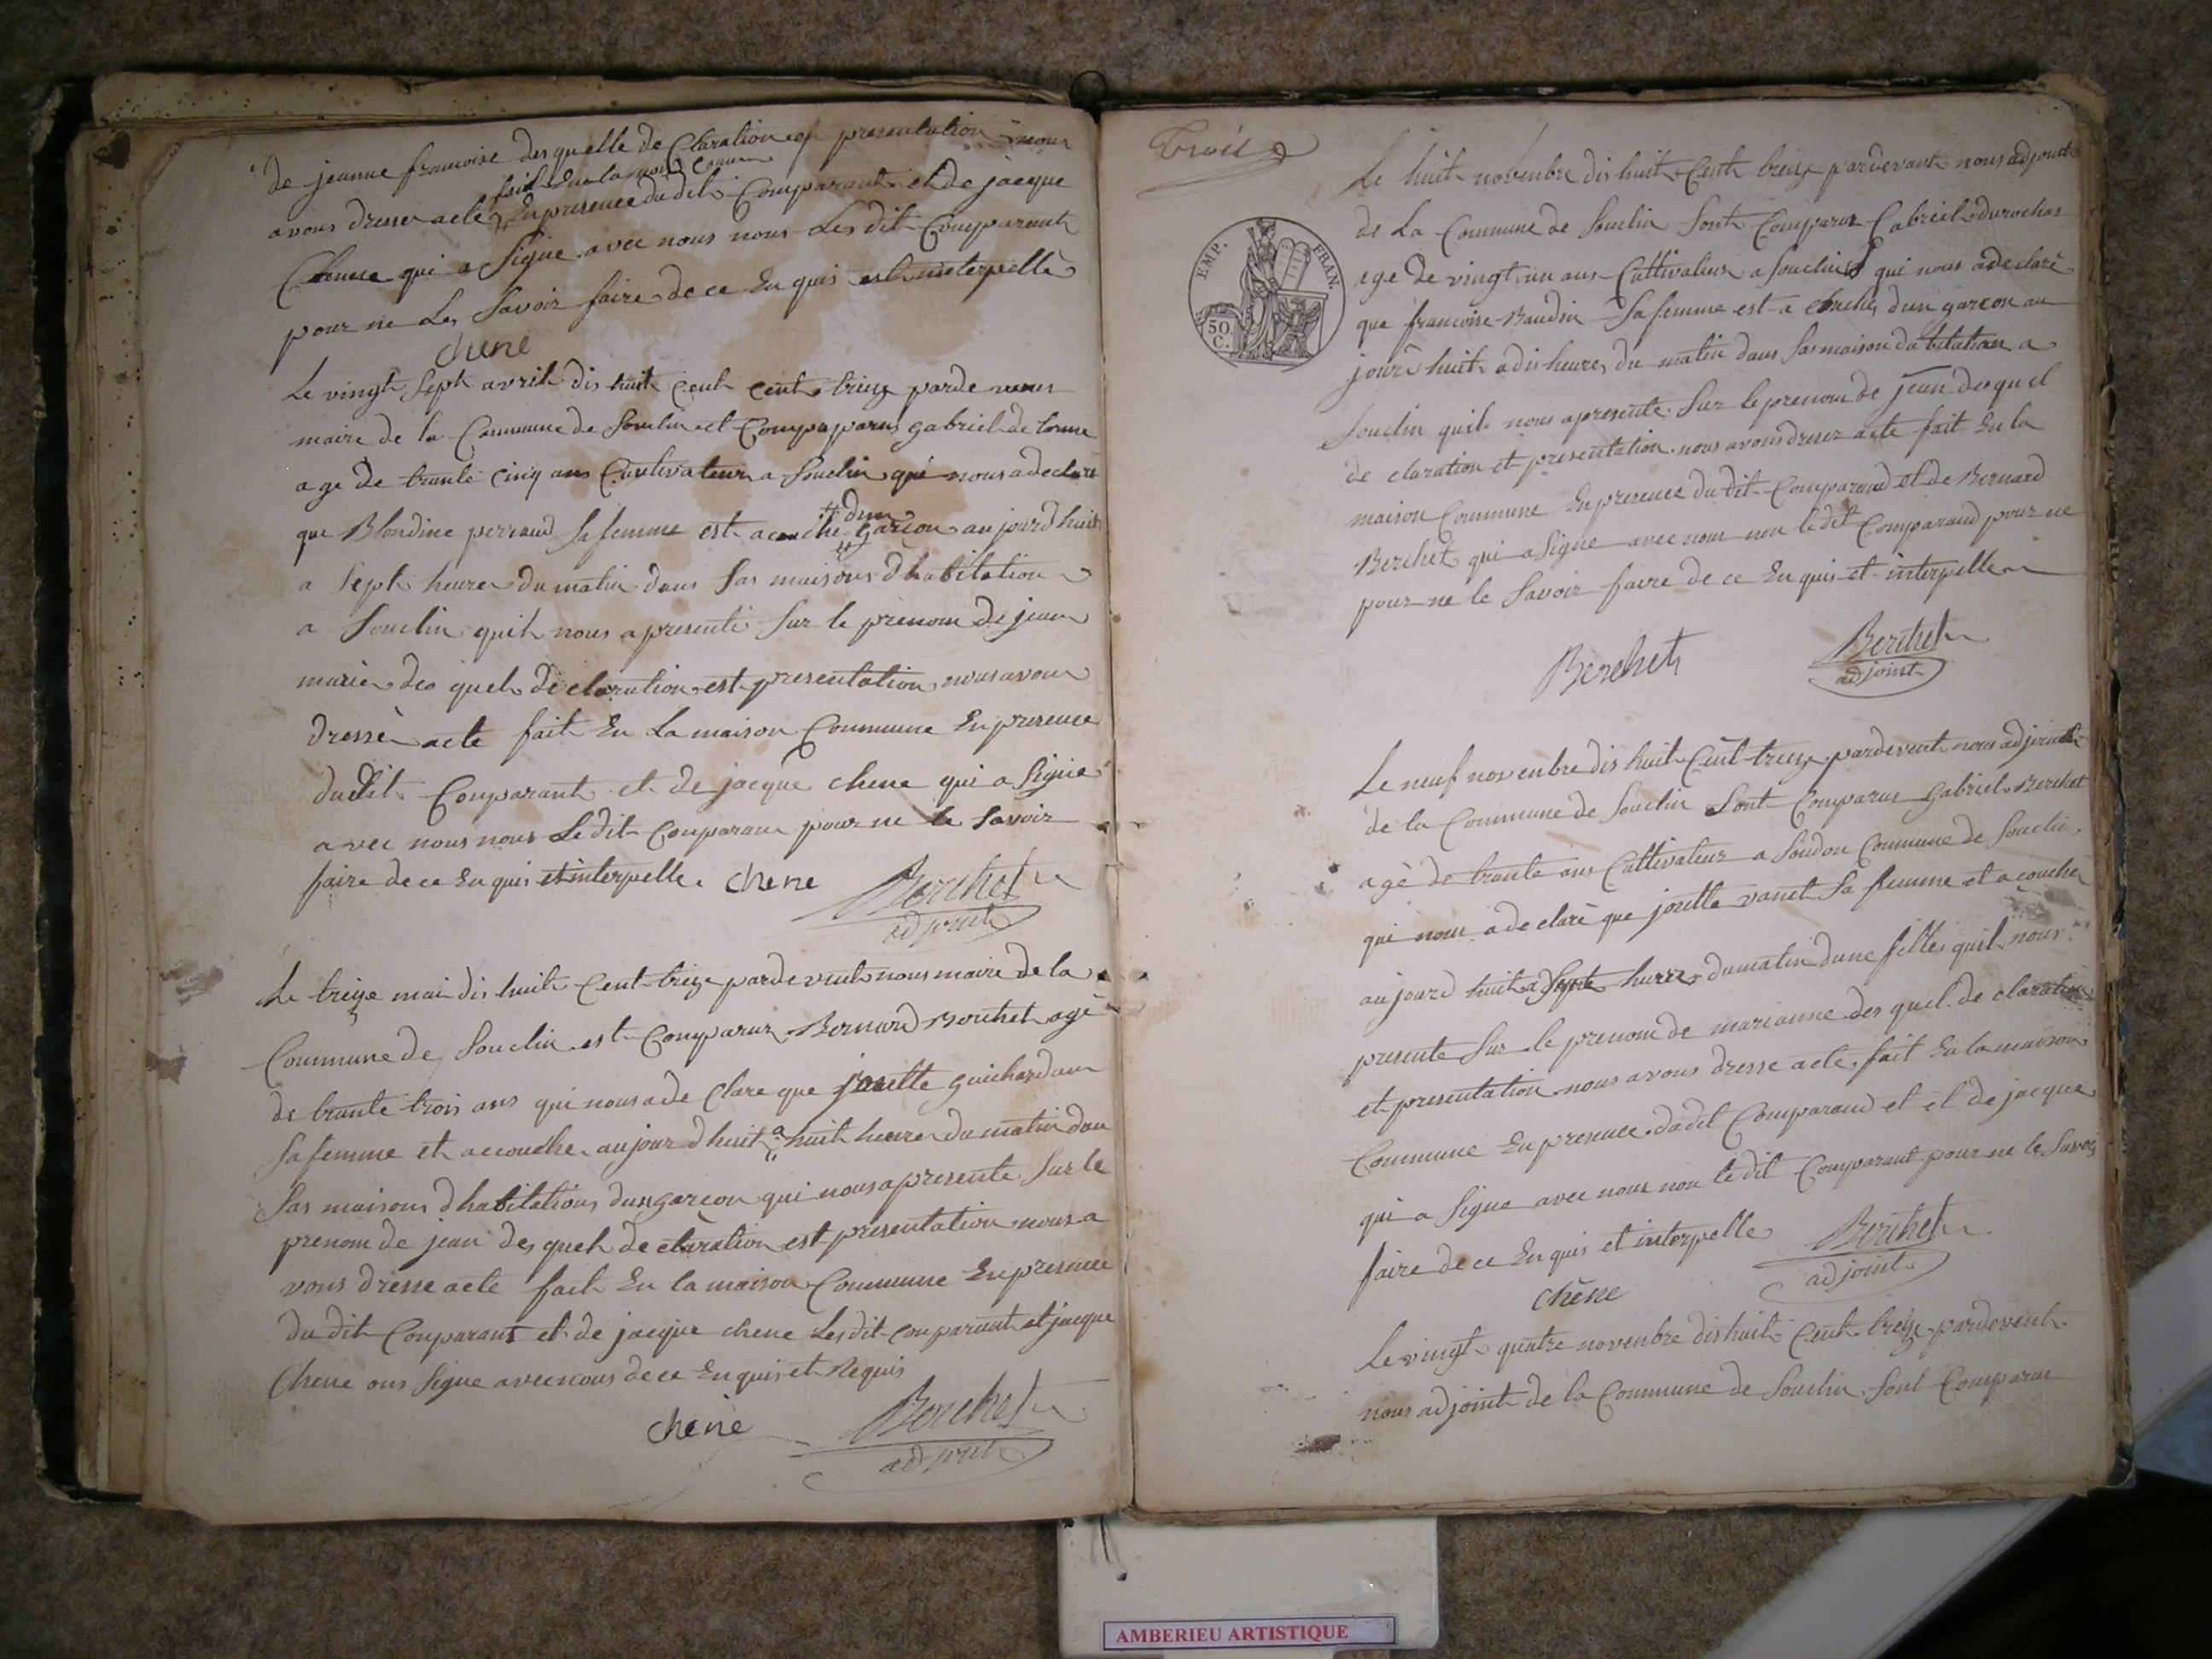 de jeanne francoise des quelle de Claration et presentation nous
fait En la mais Comun
avons dresser acte En presence du dit Comparant et de jacque
Chene qui a Signe avec nous nous Les dit Comparant
pour ne Les Savoir faire de ce En quis est interpellè
chene
Le vingt Sept avril dis huit cent cent treize parde nous
maire de la Commune de Souclin et Compaparus gabriel de lorme
age de trante cinq ans Cultivateur a Souclin qui nous a declare
que Blondine perraud Sa femme est acouche # dun garcon au jourd huit
a Sept heures du matin dans Sas maisons d habitation
a Souclin quil nous a presenté Sur le prenom de jean
marie des quel de claration est presentation nous avons
dressè acte fait En La maison Commune En presence
dudit Comparant et de jacque chene qui a Signe
avec nous nous Le dit Comparant pour ne le Savoir
faire de ce En quis et interpelle. chene
Berthet
adjoint
Le treize mai dis huit Cent treize pardevent nous maire de la
Commune de Souclin est Comparus Bernard Berthet agè
de trante trois ans qui nous a de Clare que josette guichardan
Sa femme et accouche au jour d huit a huit heures du matin dan
Sas maisons d habitations dun garcon qui nous a presente Sur le
prenom de jean des quel de claration est presentation nous a
vons dresse acte fait En la maison Commune En presence
du dit Comparant et de jacque chene Les dit Comparant et jacque
Chene ons Signe avec nous de ce En quis et Requis
chene
Berthet
adjoint
Trois
EMP. FRAN.
50 C.
Le huit novembre dis huit Cent treize pardevant nous adjoint
de La Commune de Souclin Sont Comparus Gabriel durochas
age de vingt un ans Cultivateur a Souclin qui nous a declaré
que francoise Baudin Sa femme est a couche, dun garcon au
jourd huit a dis heures du matin dans Sas maison dabitation a
Souclin quil nous a presente Sur le prenom de jean des quel
de claration et presentation nous avons dresez acte fait En la
maison Commune En presence du dit Comparand et de Bernard
Berchet qui a Signe avec nous non le dit Comparand pour ne
pour ne le Savoir faire de ce En quis et interpelle
Berchet
Berthet
adjoint
Le neuf novenbre dis huit Cent treize pardevent nous adjoint
de la Commune de Souclin Sont Comparus Gabriel Berchet
agé de trante ans Cultivateur a Soudon Commune de Souclin,
qui nous a declaré que josette vanet Sa femme et a couche
au jourd huit a Sept hures du matin dune fille quil nous
presente Sur le prenom de marianne des quel de claration
et presentation nous avons dresse acte fait En la maison
Commune En presence du dit Comparand et et de jacque
qui a Signe avec nous non le dit Comparant pour ne le Savoir
faire de ce En quis et interpelle
chène
Berthet
adjoint
Le vingt quatre novenbre dis huit Cent treize pardevent
nous adjoint de la Commune de Souclin Sont Comparus
AMBERIEU ARTISTIQUE